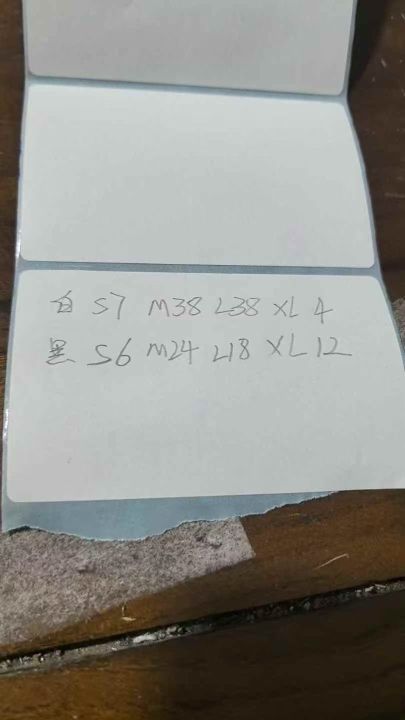 白 S7 M38 L38 XL 4
黑 S6 M24 L18 XL 12